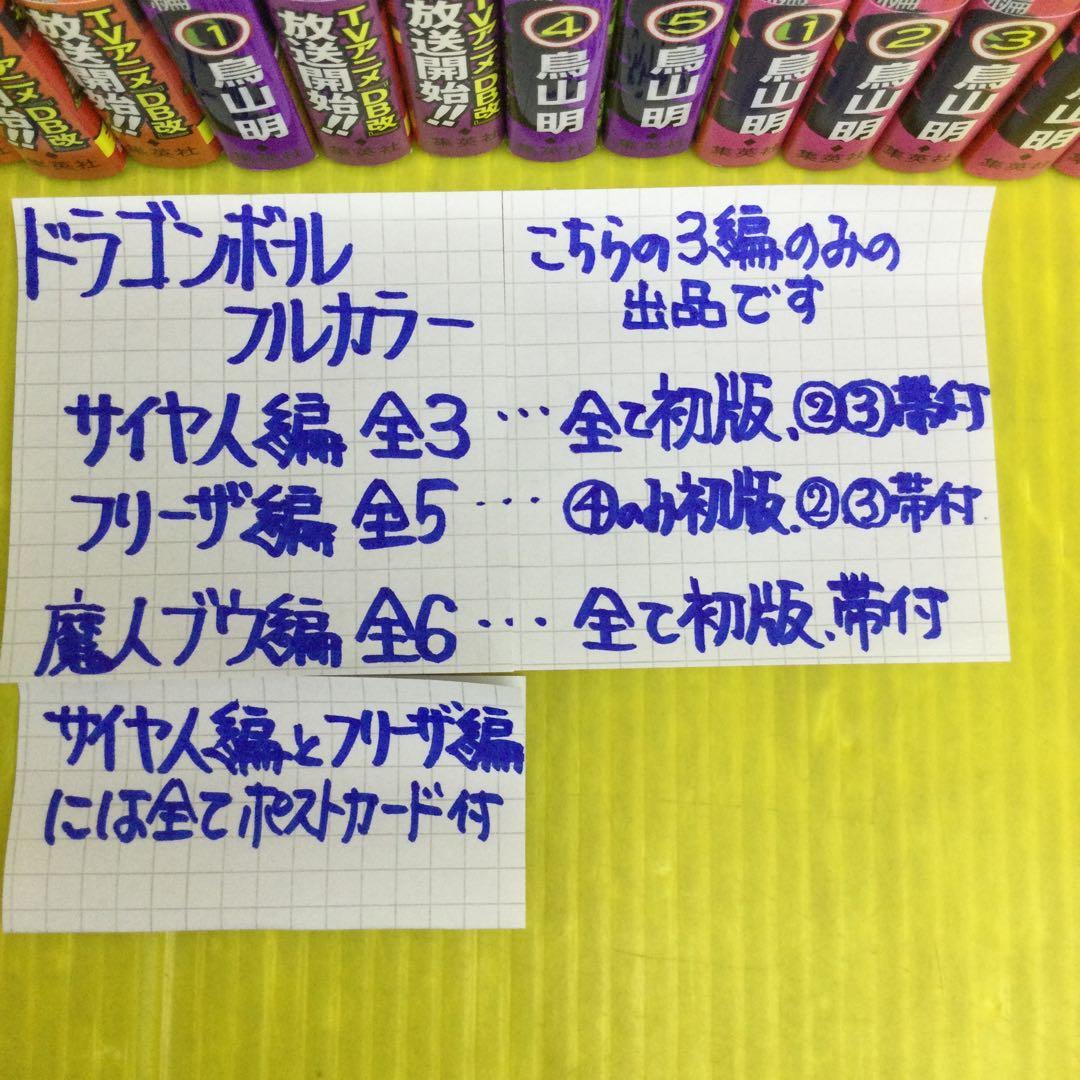 TVアニメ『DB改』
放送開始!!
① 鳥山明
集英社
TVアニメ『DB改』
放送開始!!
TVアニメ『DB改』
放送開始!!
④ 鳥山明
集英社
⑤ 鳥山明
集英社
① 鳥山明
集英社
② 鳥山明
集英社
③ 鳥山明
集英社
ドラゴンボール
フルカラー
こちらの3編のみの
出品です
サイヤ人編 全3 … 全て初版、②③帯付
フリーザ編 全5 … ④のみ初版、②③帯付
魔人ブウ編 全6 … 全て初版、帯付
サイヤ人編とフリーザ編
には全てポストカード付